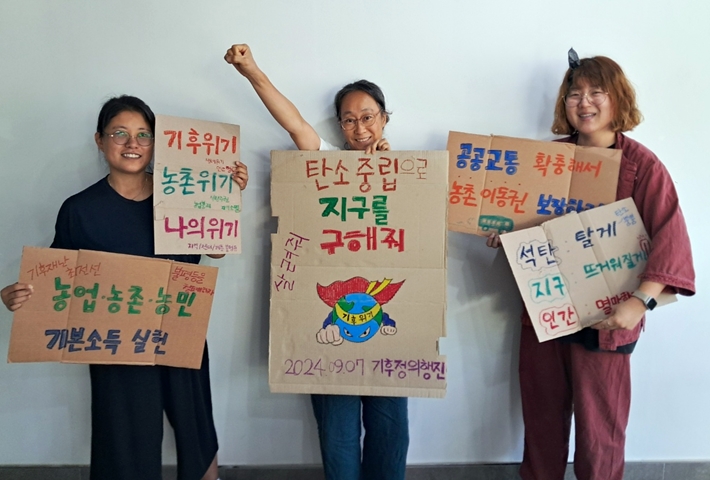 기후위기
농촌위기
나의위기
기후재난 최전선
농업·농촌·농민
기본소득 실현
탄소중립으로
지구를
구해줘
기후위기
2024.09.07 기후정의행진
공공교통 확충해서
농촌 이동권 보장하라
석탄
지구
인간
탈게
뜨거워질게